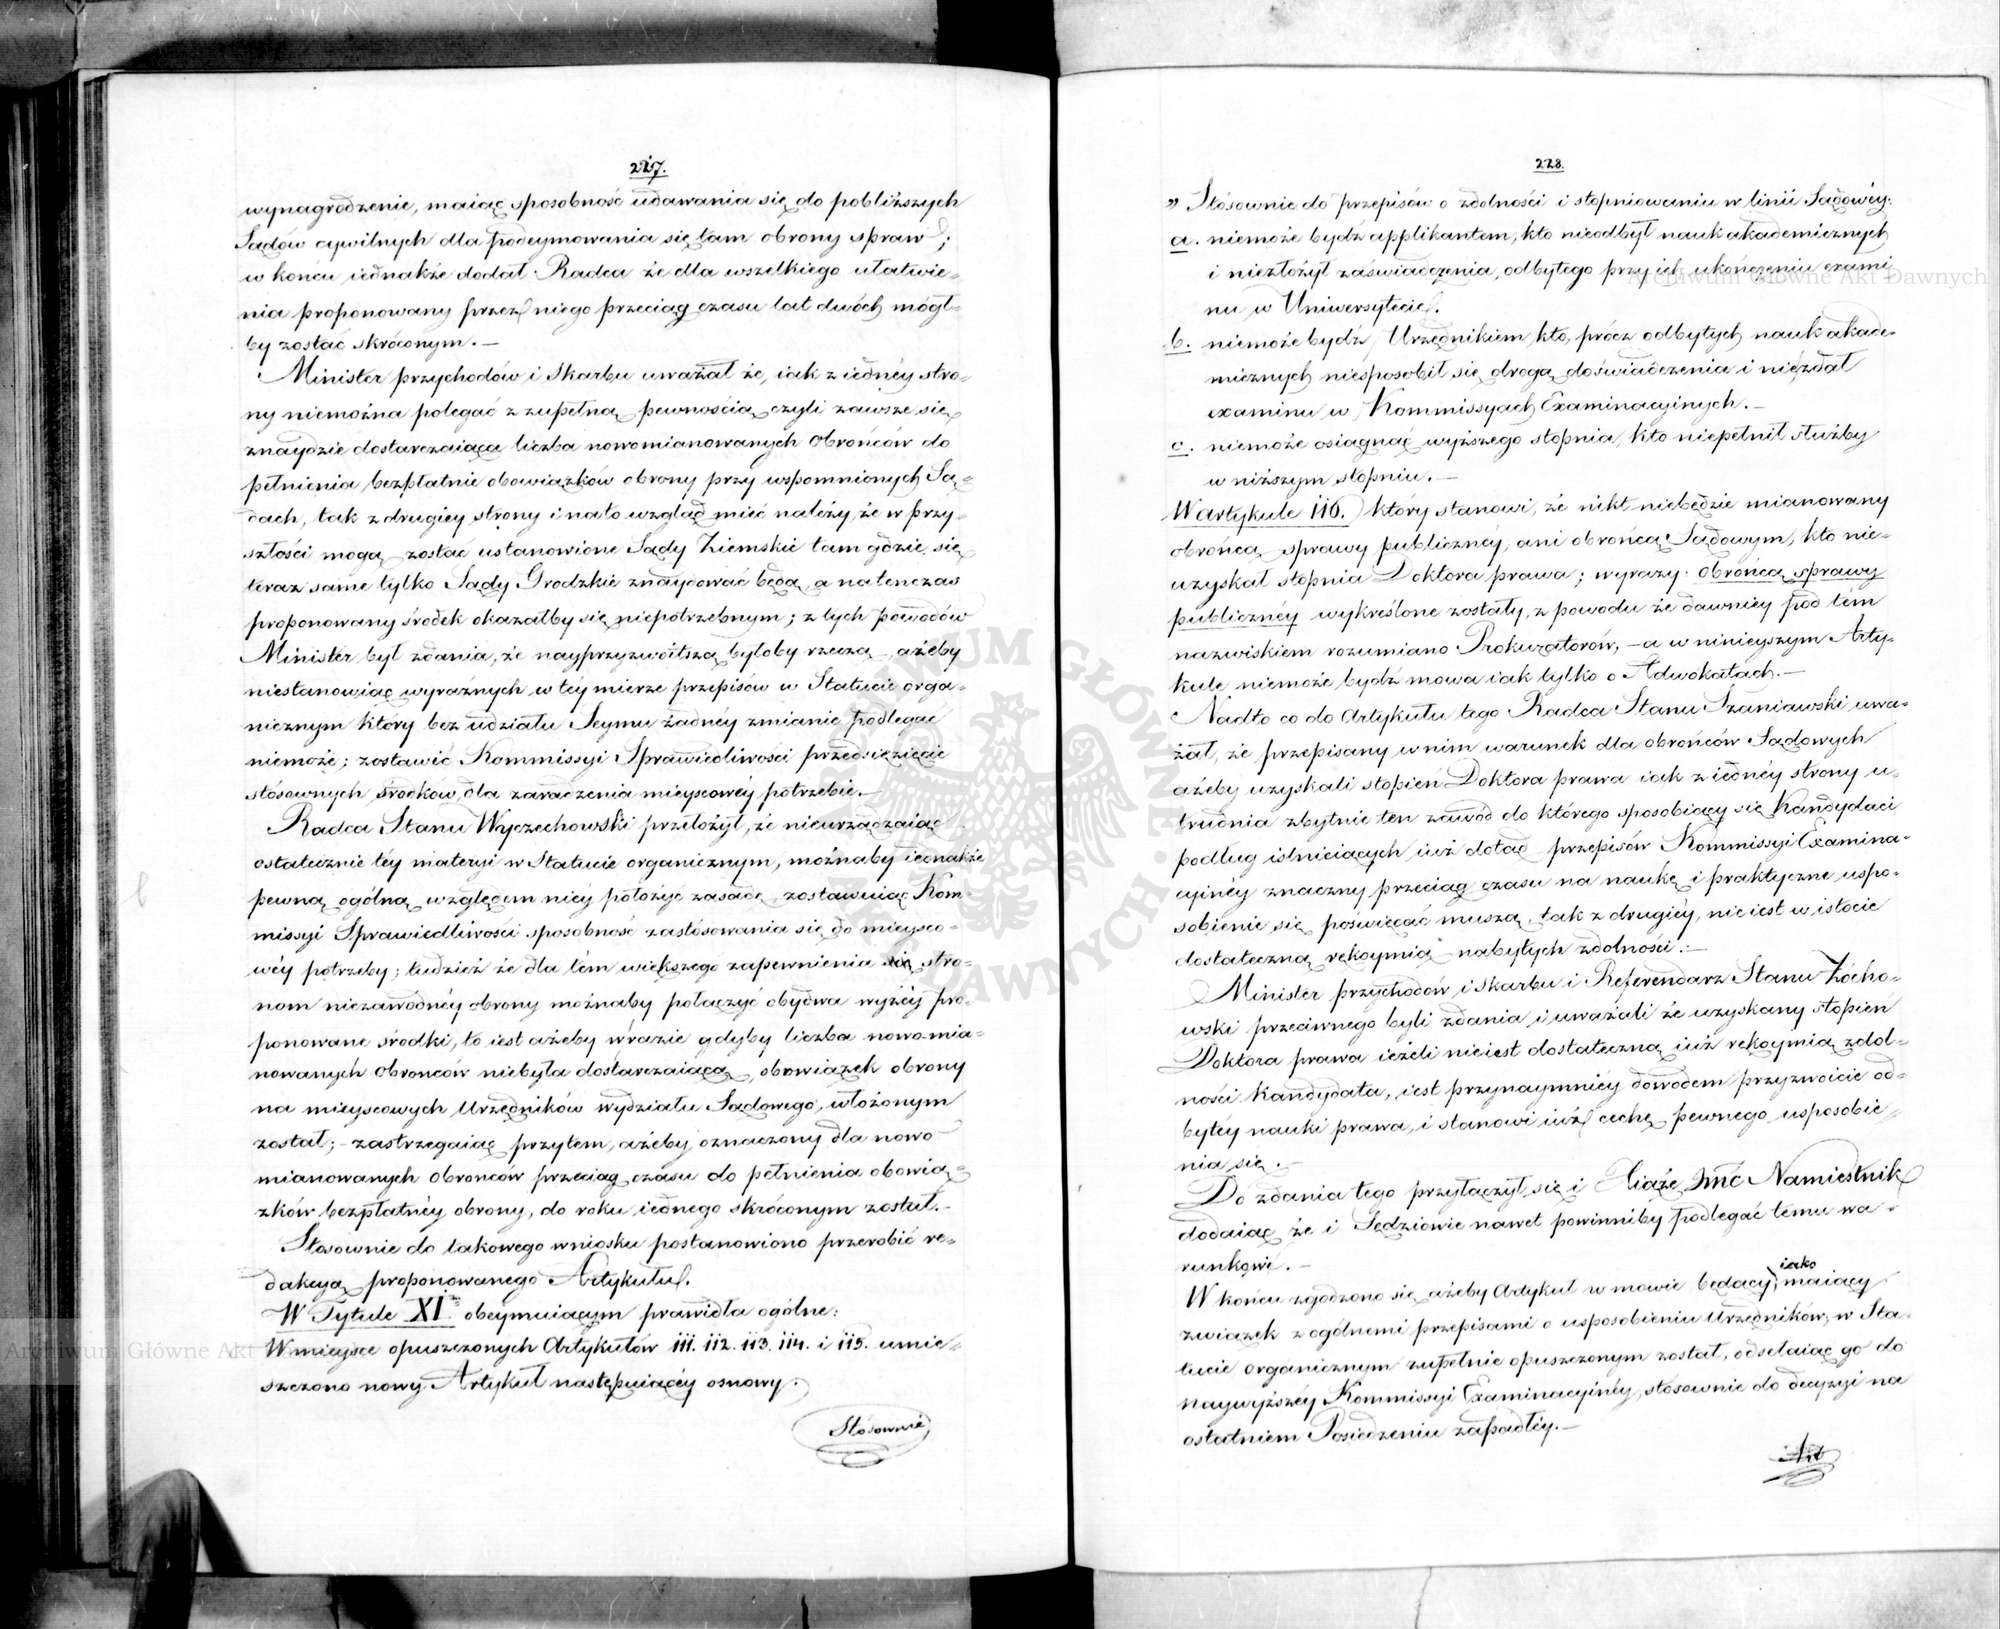 227.
wynagrodzenie, maiąc sposobność udawania się do pobliższych
Sądów cywilnych dla podeymowania się tam obrony spraw;
w końcu iednakże dodał Radca że dla wszelkiego ułatwie-
nia proponowany przez niego przeciąg czasu lat dwóch mógł-
by zostać skróconym. —
Minister przychodów i Skarbu uważał że, iak z iednéy stro-
ny niemożna polegać z zupełną pewnością czyli zawsze się
znaydzie dostarczaiąca liczba nowomianowanych Obrońców do
pełnienia bezpłatnie obowiązków obrony przy wspomnionych Są-
dach, tak z drugiey strony i na to wzgląd mieć należy, że w przy-
szłości mogą zostać ustanowione Sądy Ziemskie tam gdzie się
teraz same tylko Sądy Grodzkie znaydować będą, a natenczas
proponowany środek okazałby się niepotrzebnym; z tych powodów
Minister był zdania, że nayprzyzwoitszą byłoby rzeczą, ażeby
niestanowiąc wyraźnych w téy mierze przepisów w Statucie orga-
nicznym który bez udziału Seymu żadnéy zmianie podlegać
niemoże; zostawić Kommissyi Sprawiedliwości przedsięzięcie
stósownych środków, dla zaradzenia mieyscowéy potrzebie. —
Radca Stanu Wyczechowski przełożył, że nieurządzaiąc
ostatecznie téy materyi w Statucie organicznym, możnaby iednakże
pewną ogólną względem niéy położyć zasadę, zostawuiąc Kom-
missyi Sprawiedliwości sposobność zastósowania się do mieysco-
wéy potrzeby; tudzież że dla tém większego zapewnienia stro-
nom niezawodnéy obrony możnaby połączyć obydwa wyżéy pro-
ponowane środki, to iest ażeby w razie gdyby liczba nowomia-
nowanych Obrońców niebyła dostarczaiącą, obowiązek obrony
na mieyscowych Urzędników wydziału Sądowego, włożonym
został; — zastrzegaiąc przytem, ażeby oznaczony dla nowo
mianowanych Obrońców przeciąg czasu do pełnienia obowią-
zków bezpłatnéy obrony, do roku iednego skróconym został. —
Stosownie do takowego wniosku postanowiono przerobić re-
dakcyą proponowanego Artykułu.
W Tytule XI. obeymuiącym prawidła ogólne:
W mieysce opuszczonych Artykułów 111. 112. 113. 114. i 115. umie-
szczono nowy Artykuł następuiącéy osnowy.
Stósownie
228.
„ Stósownie do przepisów o zdolności i stopniowaniu w linii Sądowéy.
a. niemoże bydź applikantem, kto nieodbył nauk akademicznych
i niezłożył zaświadczenia, odbytego przy ich ukończeniu exami
nu w Uniwersytecie.
b. niemoże bydź Urzędnikiem kto, prócz odbytych nauk akade-
micznych niesposobił się drogą doświadczenia i niezdał
examinu w Kommissyach Examinacyinych. —
c. niemoże osiągnąć wyższego stopnia, kto niepełnił służby
w niższym stopniu. —
W artykule 116. który stanowi, że nikt niebędzie mianowany
obrońcą sprawy publicznéy, ani obrońcą Sądowym, kto nie-
uzyskał stopnia Doktora prawa; wyrazy: obrońcą sprawy
publicznéy wykreślone zostały, z powodu że dawniéy pod tém
nazwiskiem rozumiano Prokuratorów, — a w ninieyszym Arty-
kule niemoże bydź mowa iak tylko o Adwokatach. —
Nadto co do Artykułu tego Radca Stanu Szaniawski uwa-
żał, że przepisany w nim warunek dla obrońców Sądowych
ażeby uzyskali stopień Doktora prawa iak z iednéy strony u-
trudnia zbytnie ten zawód do którego sposobiący się Kandydaci
podług istnieiących iuż dotąd przepisów Kommissyi Examina-
cyinéy znaczny przeciąg czasu na naukę i praktyczne uspo-
sobienie się poświęcać muszą, tak z drugiéy, nie iest w istocie
dostateczną rękoymią nabytych zdolności. —
Minister przychodów i Skarbu i Referendarz Stanu Żócho-
wski przeciwnego byli zdania i uważali że uzyskany stopień
Doktora prawa ieżeli nieiest dostateczną iuż rękoymią zdol-
ności Kandydata, iest przynaymniéy dowodem przyzwoicie od-
bytey nauki prawa, i stanowi iuż cechę pewnego usposobie-
nia się. —
Do zdania tego przyłączył się i Xiąże Jmć Namiestnik
dodaiąc że i Sędziowie nawet powinniby podlegać temu wa-
runkowi. —
W końcu zgodzono się ażeby Artykuł w mowie będący, iako maiący
związek z ogólnemi przepisami o usposobieniu Urzędników, w Sta-
tucie organicznym zupełnie opuszczonym został, odsełaiąc go do
naywyższéy Kommissyi Examinacyinéy, stósownie do decyzyi na
ostatniem Posiedzeniu zapadłéy. —
Art
Archiwum Główne Akt Dawnych
Archiwum Główne Akt
ARCHIWUM GŁÓWNE AKT DAWNYCH